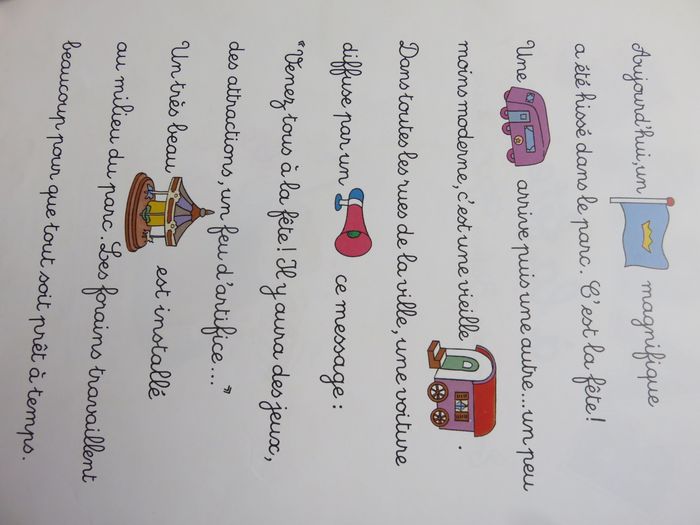 Aujourd'hui, un magnifique
a été hissé dans le parc. C'est la fête!
Une arrive puis une autre... un peu
moins moderne, c'est une vieille .
Dans toutes les rues de la ville, une voiture
diffuse par un ce message:
"Venez tous à la fête! Il y aura des jeux,
des attractions, un feu d'artifice..."
Un très beau est installé
au milieu du parc. Les forains travaillent
beaucoup pour que tout soit prêt à temps.